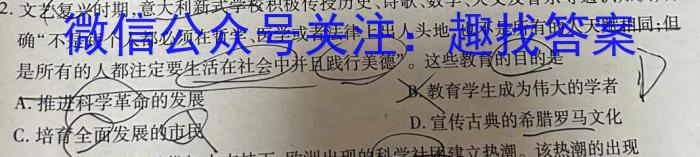 2. 文艺复兴时期,意大利新式学校积极传授历史、诗歌、数学、天文及音乐等
微信公众号关注：趣找答案
确“不是每一个人都必须在哲学、医学或者法律上出人头地,也不是所有的人天姓相同;但
是所有的人都注定要生活在社会中并且践行美德”。这些教育的目的是
A. 推进科学革命的发展
B. 教育学生成为伟大的学者
C. 培育全面发展的市民
D. 宣传古典的希腊罗马文化
欧洲出现的科学社团建立热潮。该热潮的出现